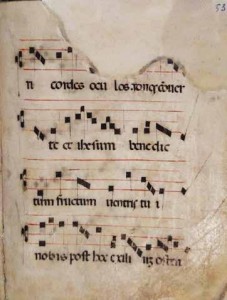 n cordes ocu los ad nos conver
te et ihesum benedic
tum fructum ventris tu i
nobis post hoc exili um ostē